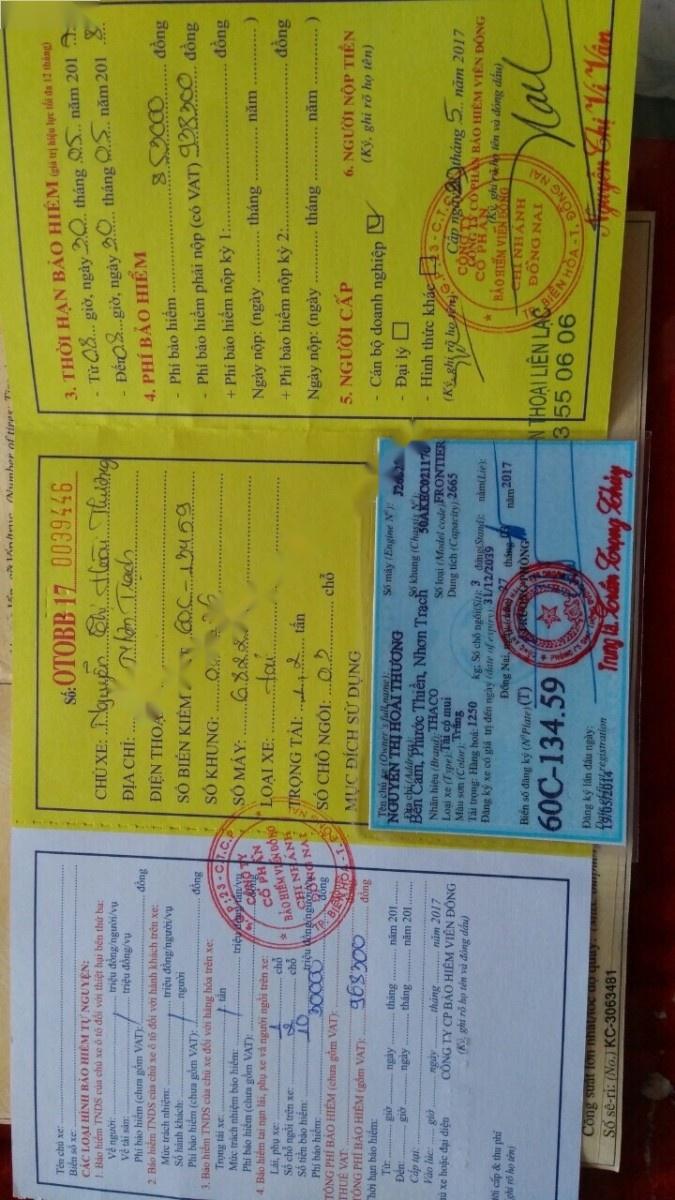 3. THỜI HẠN BẢO HIỂM (giá trị hiệu lực tối đa 12 tháng)
- Từ 08 giờ, ngày 20 tháng 05 năm 2017
- Đến 08 giờ, ngày 20 tháng 05 năm 2018
4. PHÍ BẢO HIỂM
- Phí bảo hiểm 853000 đồng
- Phí bảo hiểm phải nộp (có VAT) 938300 đồng
+ Phí bảo hiểm nộp kỳ 1: đồng
Ngày nộp: (ngày tháng năm )
+ Phí bảo hiểm nộp kỳ 2: đồng
Ngày nộp: (ngày tháng năm )
5. NGƯỜI CẤP
6. NGƯỜI NỘP TIỀN
(Ký, ghi rõ họ tên)
- Cán bộ doanh nghiệp
- Đại lý
- Hình thức khác
(Ký, ghi rõ họ tên)
Cấp ngày 20 tháng 5 năm 2017
CÔNG TY CỔ PHẦN BẢO HIỂM VIỄN ĐÔNG
(Ký, ghi rõ họ tên và đóng dấu)
CÔNG TY
CỔ PHẦN
BẢO HIỂM VIỄN ĐÔNG
CHI NHÁNH
ĐỒNG NAI
TP. BIÊN HÒA - T. ĐỒNG NAI
Nguyễn Thị Vi Vân
THOẠI LIÊN LẠC
3 55 06 06
Số: OTOBB17 0039446
CHỦ XE: Nguyễn Thị Hoài Thương
ĐỊA CHỈ: Nhơn Trạch
ĐIỆN THOẠI
SỐ BIỂN KIỂM 60C-13459
SỐ KHUNG:
SỐ MÁY: 6822
LOẠI XE: tải
TRỌNG TẢI: 1,2 tấn
SỐ CHỖ NGỒI: 03 chỗ
MỤC ĐÍCH SỬ DỤNG
Tên chủ xe (Owner's full name):
NGUYỄN THỊ HOÀI THƯƠNG
Địa chỉ (Address):
Bến Cam, Phước Thiền, Nhơn Trạch
Nhãn hiệu (Brand): THACO
Loại xe (Type): Tải có mui
Màu sơn (Color): Trắng
Tải trọng: Hàng hoá: 1250 kg; Số chỗ ngồi(Sit): 3 đứng(Stand): nằm(Lie):
Đăng ký xe có giá trị đến ngày (date of expire) 31/12/2039
Số máy (Engine Nº):
Số khung (Chassis Nº):
Số loại (Model code) FRONTIER
Dung tích (Capacity) 2665
Đồng Nai, 27 tháng năm 2017
TRƯỞNG PHÒNG
Biển số đăng ký (Nº Plate) (T)
60C-134.59
Đăng ký lần đầu ngày:
Date of first registration
19/05/2014
Tên chủ xe:
Biển số xe:
CÁC LOẠI HÌNH BẢO HIỂM TỰ NGUYỆN:
1. Bảo hiểm TNDS của chủ xe ô tô đối với thiệt hại bên thứ ba:
Về người: triệu đồng/người/vụ
Về tài sản: triệu đồng/vụ
Phí bảo hiểm (chưa gồm VAT): đồng
2. Bảo hiểm TNDS của chủ xe ô tô đối với hành khách trên xe:
Mức trách nhiệm: triệu đồng/người/vụ
Số hành khách: người
Phí bảo hiểm (chưa gồm VAT): đồng
3. Bảo hiểm TNDS của chủ xe đối với hàng hóa trên xe:
Trọng tải xe: tấn
Mức trách nhiệm bảo hiểm: triệu đồng/tấn/vụ
Phí bảo hiểm (chưa gồm VAT): đồng
4. Bảo hiểm tai nạn lái, phụ xe và người ngồi trên xe:
Lái, phụ xe: 1 chỗ
Số chỗ ngồi trên xe: 2 chỗ
Số tiền bảo hiểm: 10 triệu đồng/người/vụ
Phí bảo hiểm: 30000 đồng
TỔNG PHÍ BẢO HIỂM (chưa gồm VAT):
THUẾ VAT:
TỔNG PHÍ BẢO HIỂM (gồm VAT): 968300 đồng
Thời hạn bảo hiểm:
Từ: giờ ngày tháng năm 201
Đến: giờ ngày tháng năm 201
Cấp tại:
Vào lúc: giờ ngày tháng năm 2017
CÔNG TY CP BẢO HIỂM VIỄN ĐÔNG
(Ký, ghi rõ họ tên và đóng dấu)
CÔNG TY
CỔ PHẦN
BẢO HIỂM VIỄN ĐÔNG
CHI NHÁNH
ĐỒNG NAI
Số sê-ri: (No.) KC-3063481